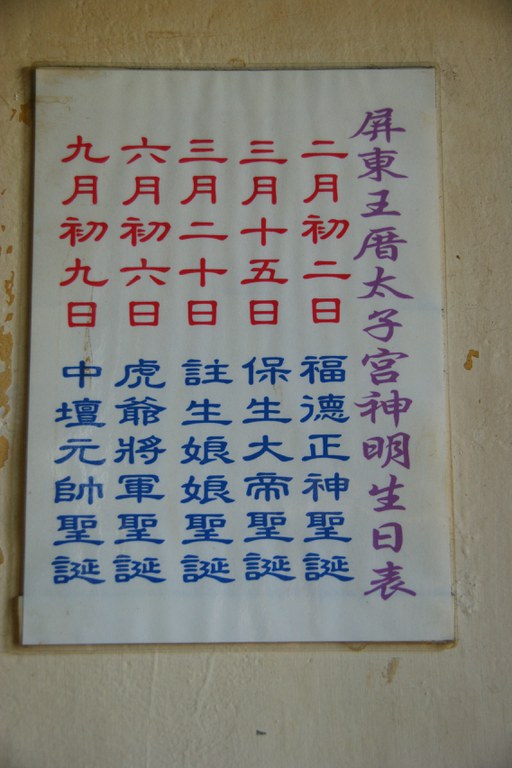 屏東王厝太子宮神明生日表
二月初二日 福德正神聖誕
三月十五日 保生大帝聖誕
三月二十日 註生娘娘聖誕
六月初六日 虎爺將軍聖誕
九月初九日 中壇元帥聖誕